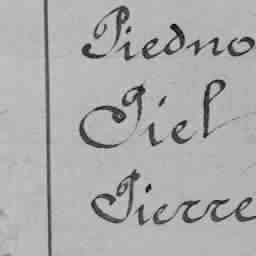 Piedno
Piel
Pierre